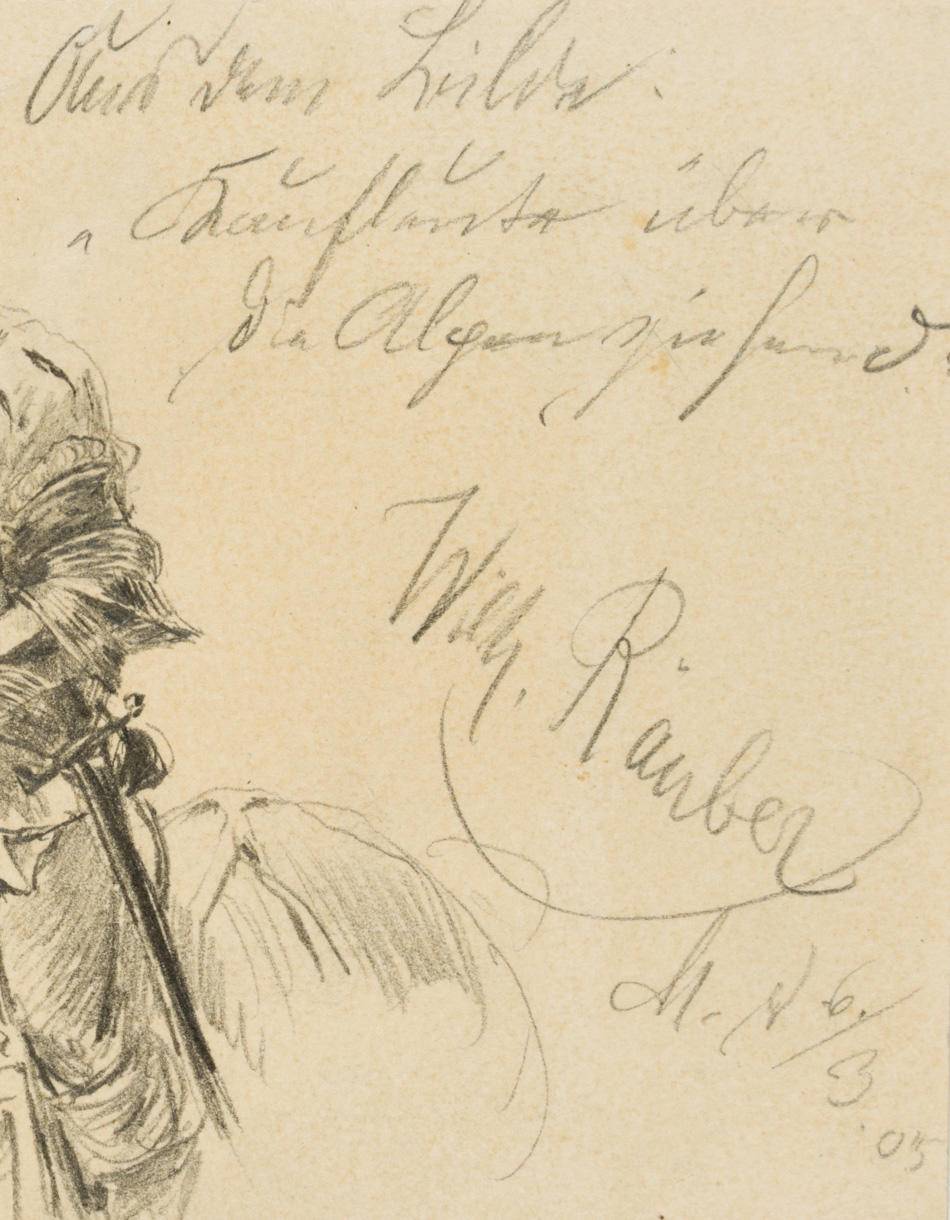 Aus dem Bilde:
„Kaufleute über
die Alpen ziehend.
Wilh. Räuber
M. d 6./3
05